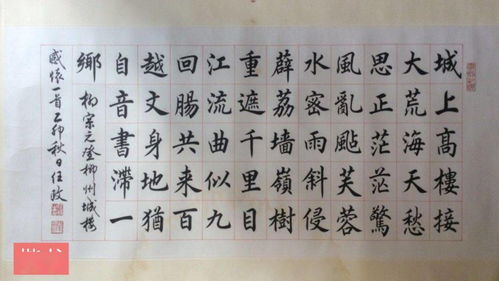 城上高樓接
大荒海天愁
思正茫茫驚
風亂颭芙蓉
水密雨斜侵
薜荔墻嶺樹
重遮千里目
江流曲似九
回腸共來百
越文身地猶
自音書滯一
鄉 柳宗元登柳州城樓
感懷一首乙卯秋日任政